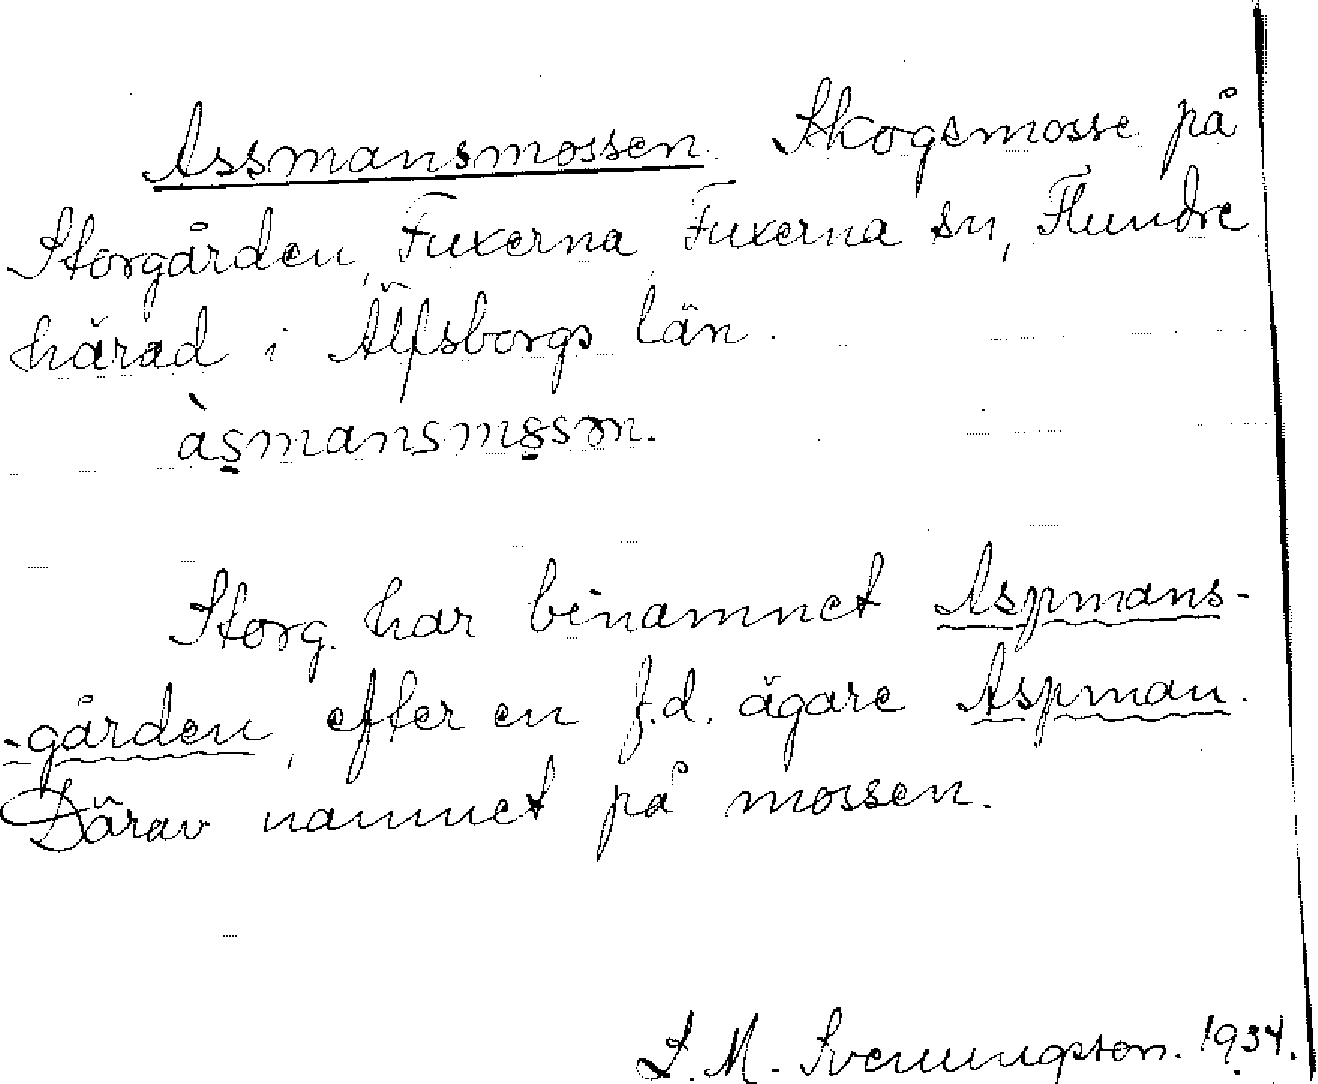 Assmansmossen. Skogsmosse på
Storgården, Fuxerna Fuxerna sn, Flundre
härad i Älfsborgs län.
àsmansmossn.
Storg. har binamnet Aspmans-
-gården, efter en f.d. ägare Aspman.
Därav namnet på mossen.
S. M. Svenungsson. 1934.